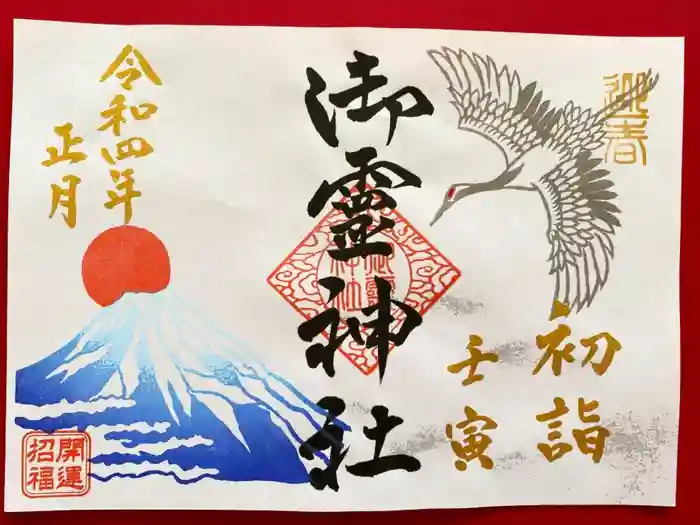 迎春
初詣
壬寅
御霊神社
令和四年
正月
開運
招福